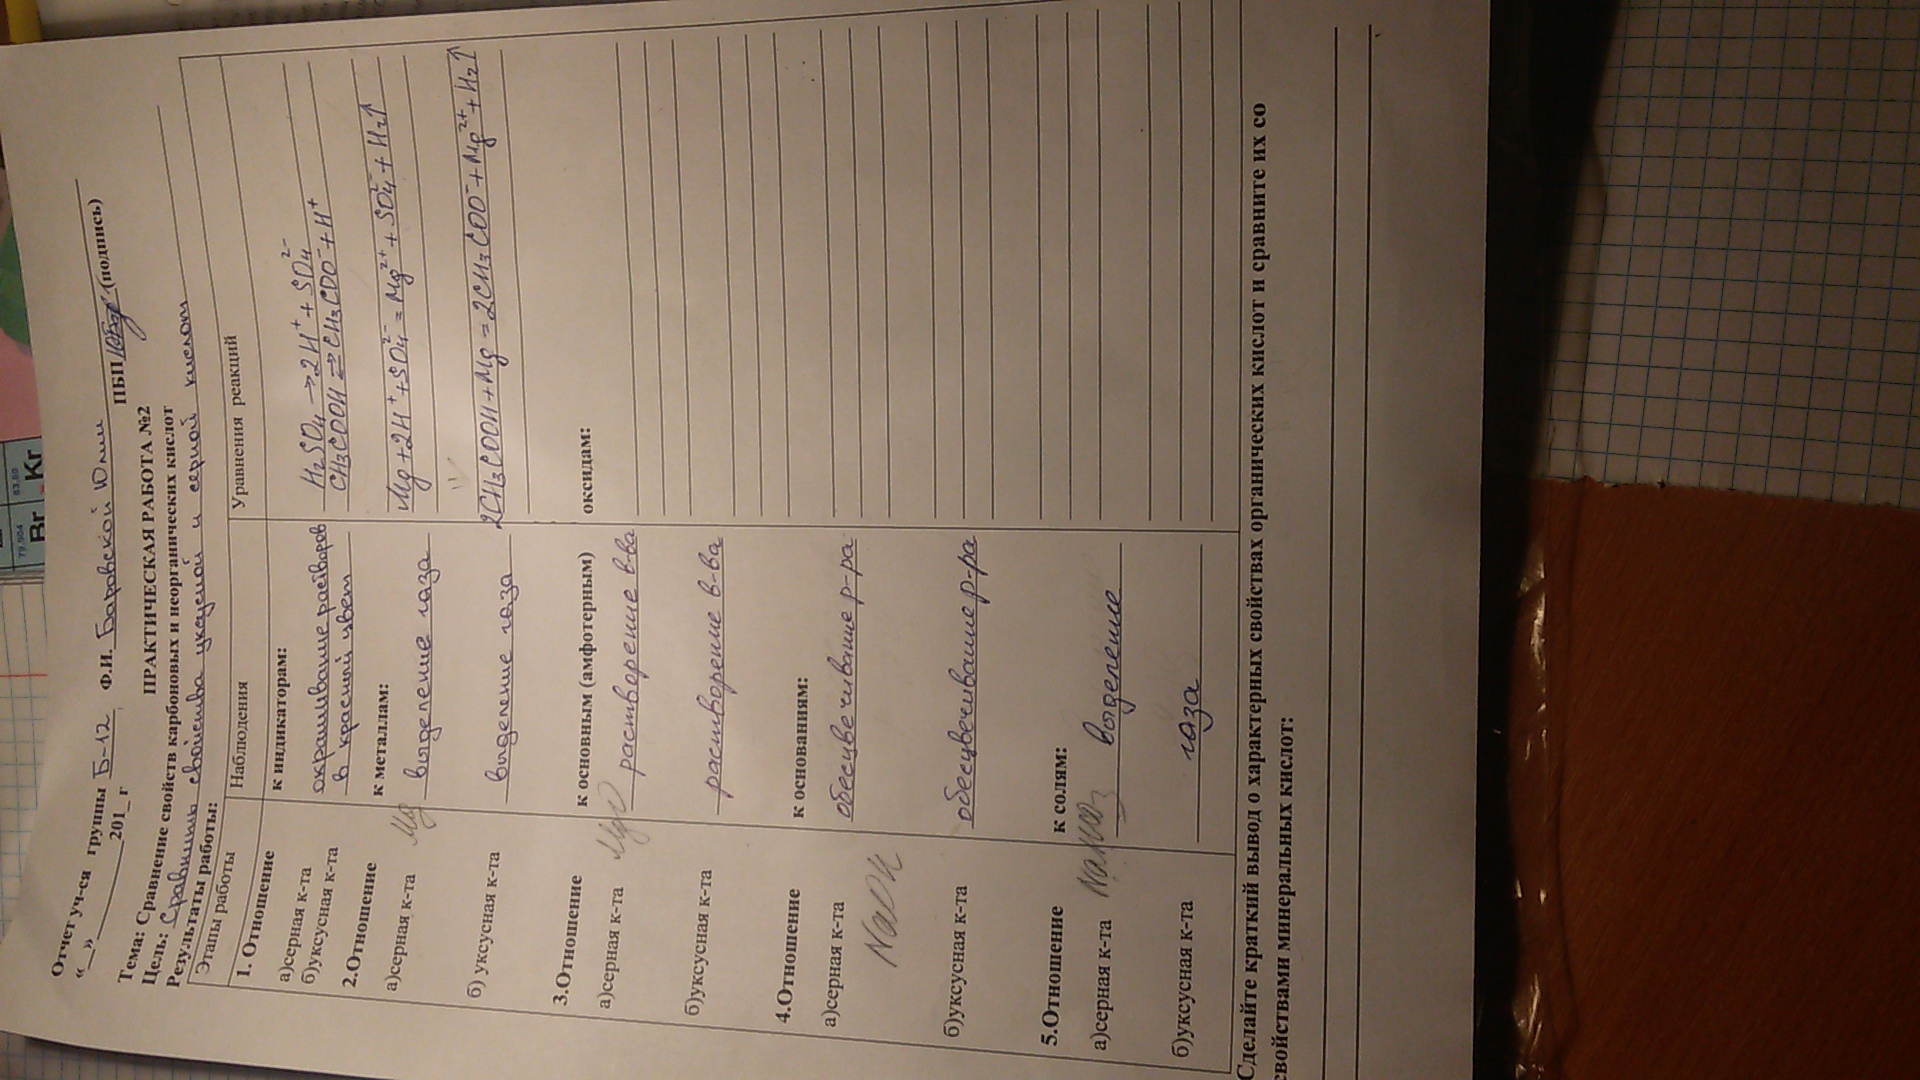 79,904
83,80
Br
Kr
Отчет уч-ся группы Б-12 Ф.И. Баровской Юлии
«__»________201_г ПБП (подпись)
ПРАКТИЧЕСКАЯ РАБОТА №2
Тема: Сравнение свойств карбоновых и неорганических кислот
Цель: Сравнить свойства уксусной и серной кислот
Результаты работы:
Этапы работы Наблюдения Уравнения реакций
1. Отношение к индикаторам:
а)серная к-та окрашивание растворов H₂SO₄ → 2H⁺ + SO₄²⁻
б)уксусная к-та в красный цвет CH₃COOH ⇄ CH₃COO⁻ + H⁺
2.Отношение к металлам:
а)серная к-та Mg выделение газа Mg + 2H⁺ + SO₄²⁻ = Mg²⁺ + SO₄²⁻ + H₂↑
б) уксусная к-та выделение газа 2CH₃COOH + Mg = 2CH₃COO⁻ + Mg²⁺ + H₂↑
3.Отношение к основным (амфотерным) оксидам:
а)серная к-та MgO растворение в-ва
б)уксусная к-та растворение в-ва
4.Отношение к основаниям:
а)серная к-та обесцвечивание р-ра
NaOH
б)уксусная к-та обесцвечивание р-ра
5.Отношение к солям:
а)серная к-та выделение
б)уксусная к-та газа
Сделайте краткий вывод о характерных свойствах органических кислот и сравните их со
свойствами минеральных кислот: